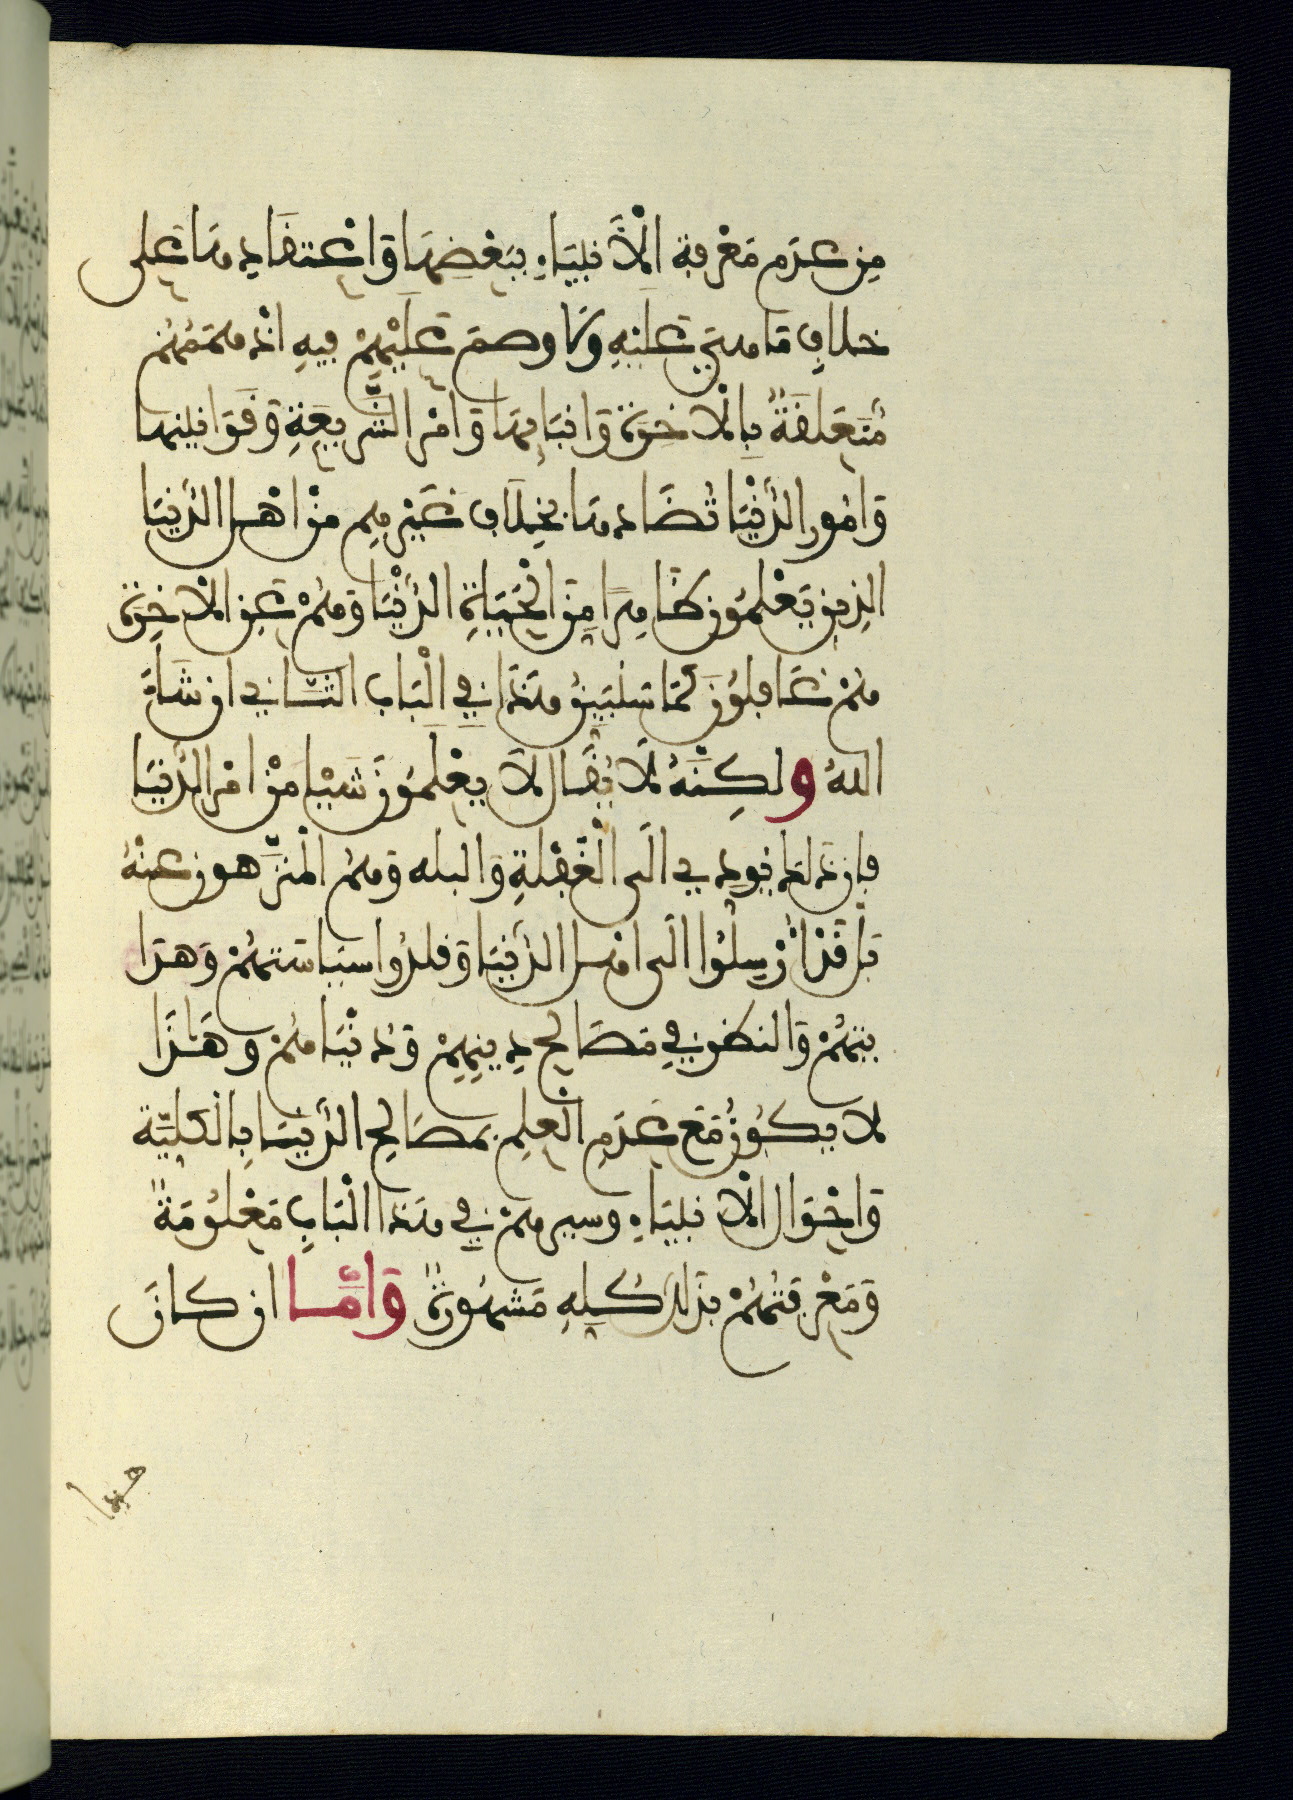 مِن عَدَم مَعْرِفة الْأَنبياءِ ببَعْضِهَا وَاعْتقَادِهَا عَلى
خلافِ مَا هي عَلَيْهِ وَلا وصمَ عَلَيْهِمْ فيهِ اذ هممُهُمْ
مُتَعَلقَةٌ بِالْاخِرَة وَانبَائِهَا وَامْر الشَّرِيعَةِ وَقَوَانِينهَا
وَامُور الدُّنْيَا تُضَادهَا بخِلَاف غَيْرِهِم مِنْ اهْل الدُّنيَا
الذِين يَعْلمُون ظَاهِرًا مِنَ الْحَيَاةِ الدُّنْيَا وَهُمْ عَنِ الْاخِرَة
هُمْ غَافِلُونَ كَمَا سَنُبَيِنُ هَذَا في الْبَاب الثَّاني ان شَاءَ
اللهُ ولكِنَّهُ لَا يُقَال لَا يعْلَمُونَ شَيْا مِنْ امْر الدُّنيَا
فإن ذَلك يُودِي الَى الْغَفْلةِ وَالبله وَهُم الْمُنَزَّهون عَنْهُ
بَل قَدْ اُرْسِلُوا الَى اهْل الدُّنيَا وَقلدُوا سيَاسَتهُمْ وَهدَا
يتهُمْ وَالنظر في مَصَالِح دِينِهِمْ وَدُنْيَاهُمْ وَهَذَا
لا يكُونُ مَعَ عَدَمِ الْعِلم بمَصَالِحِ الدُّنيَا بِالْكليَّة
وَاحْوَال الْانبيَاءِ وسيرهمْ في هَذَا الْبَابِ مَعْلُومَةٌ
وَمَعْرفَتُهُمْ بذَلك كُلِهِ مَشهُورَةٌ وَامَّا ان كَانَ